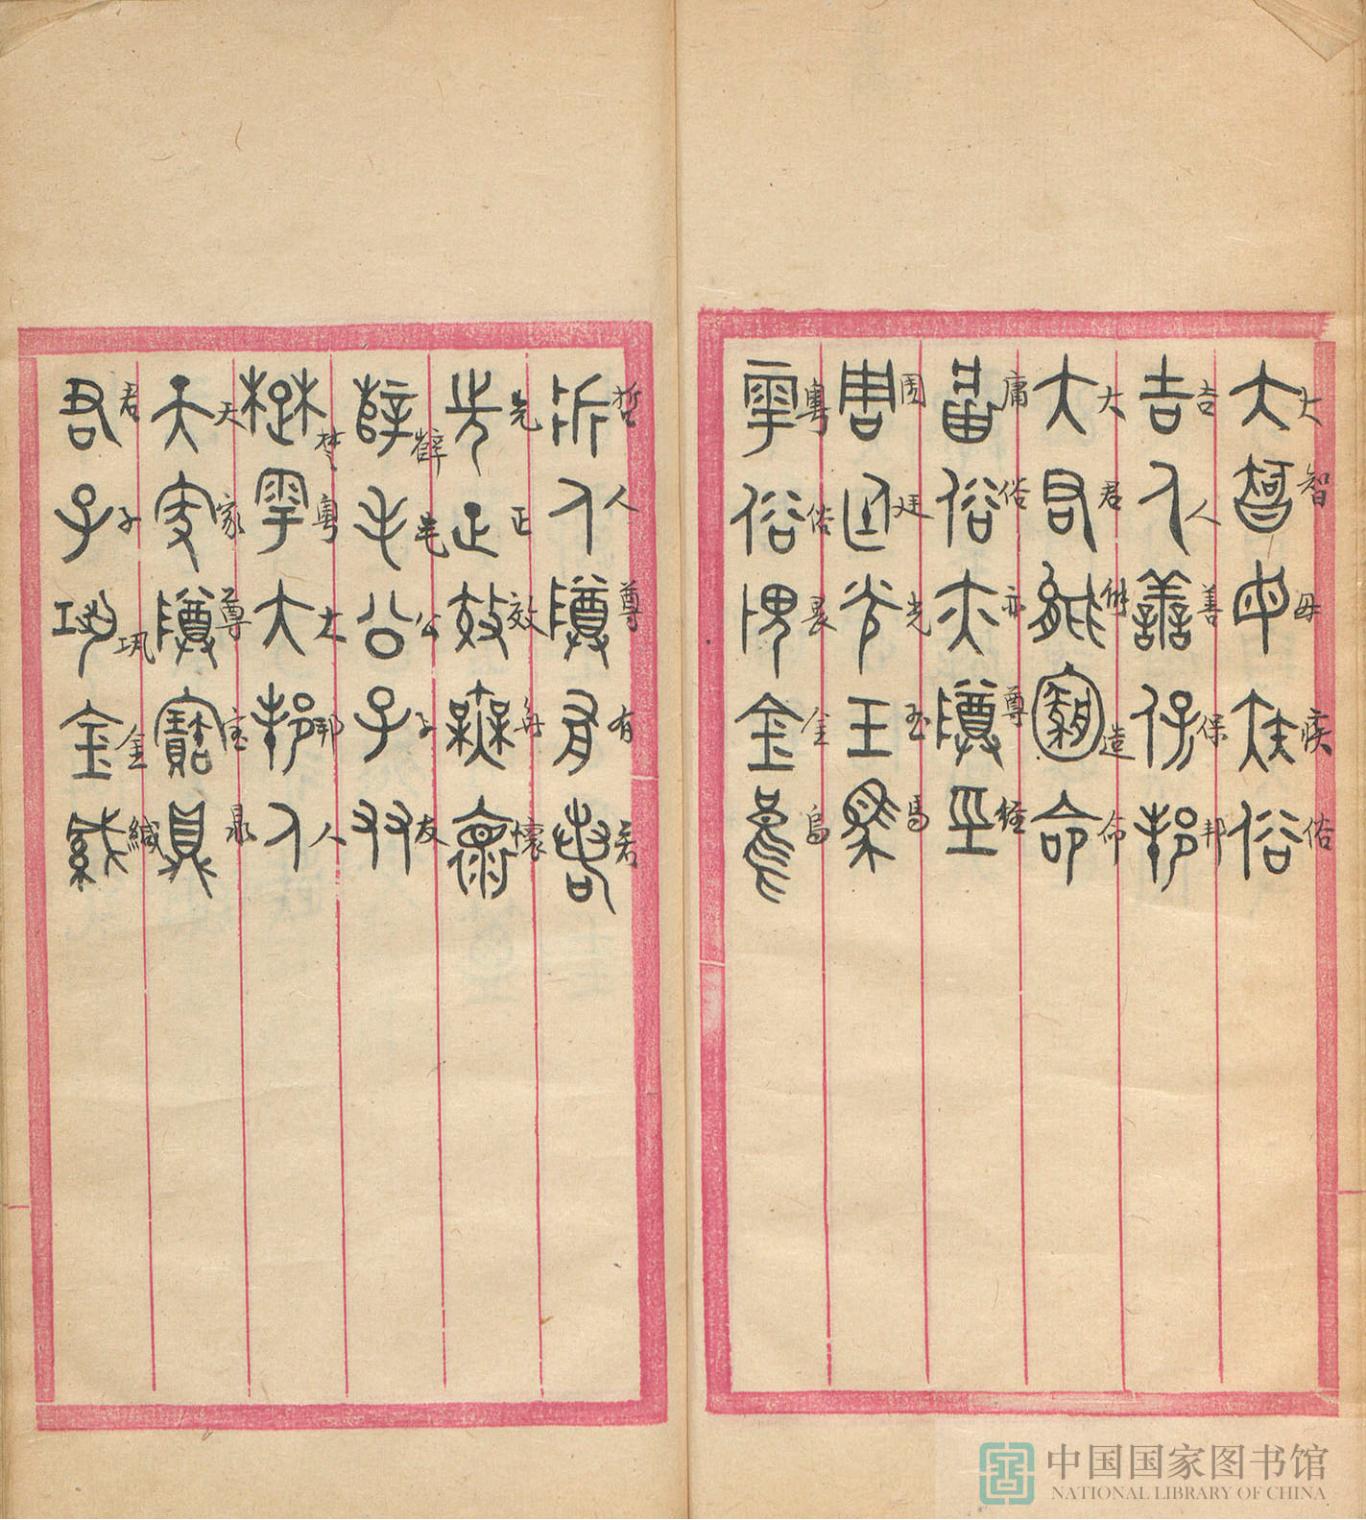 大智毋疾俗
吉人善保邦
大君能造命
庸俗亦尊經
周廷光玉馬
粵俗畏金烏
哲人尊有若
先正效無懷
薛毛公子友
楚粵大邦人
天家尊寶鼎
君子巩金緘
中国国家图书馆
NATIONAL LIBRARY OF CHINA